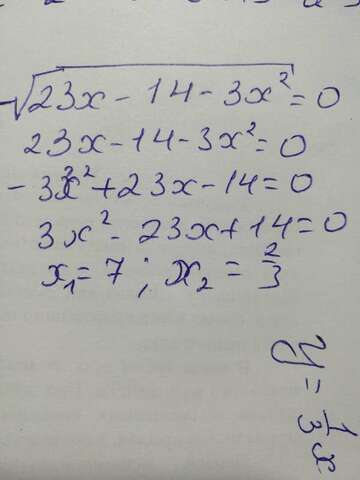 √23x - 14 - 3x² = 0
23x - 14 - 3x² = 0
- 3x² + 23x - 14 = 0
3x² - 23x + 14 = 0
x₁ = 7 ; x₂ = 2/3
y = 1/3 x